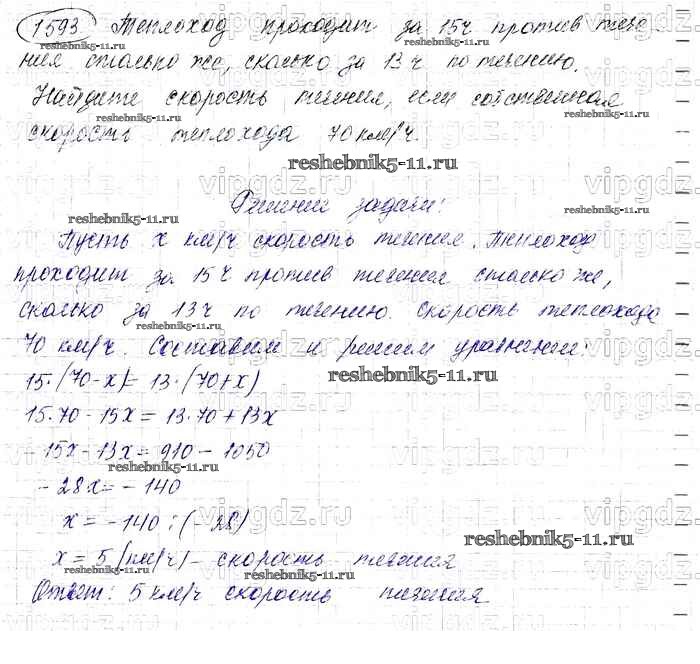 1593 Теплоход проходит за 15ч против тече-
ния столько же, сколько за 13 ч по течению.
Найдите скорость течения, если собственная
скорость теплохода 70 км/ч.
reshebnik5-11.ru
Решение задачи:
Пусть x км/ч скорость течения. Теплоход
проходит за 15 ч против течения столько же,
сколько за 13 ч по течению. Скорость теплохода
70 км/ч. Составим и решим уравнение:
15·(70-x)=13·(70+x)
reshebnik5-11.ru
15·70-15x=13·70+13x
-15x-13x=910-1050
reshebnik5-11.ru
-28x=-140
x=-140:(-28)
reshebnik5-11.ru
x=5 (км/ч)- скорость течения
reshebnik5-11.ru
Ответ: 5 км/ч скорость течения
vipgdz.ru